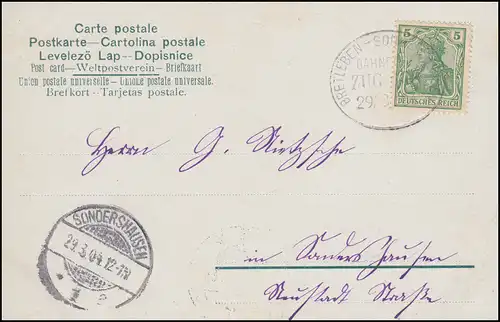 Carte postale
Postkarte—Cartolina postale
Levelező Lap--Dopisnice
Post card—Weltpostverein—Briefkaart
Union postale universelle—Unione postale universale.
Brefkort--Tarjetas postale.
BRETLEBEN-SO
BAHN
ZUG
29.
5 5
DEUTSCHES REICH
Herrn G. Nietzsche
SONDERSHAUSEN
29.3.04.12-1N
* 1 2
in Sondershausen
Neustadt Straße